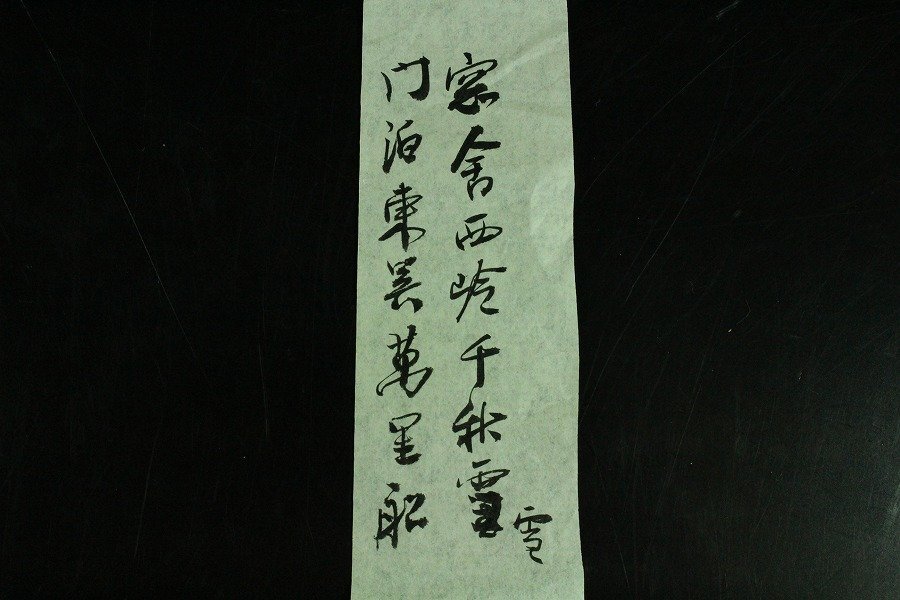 窗含西岭千秋雪
门泊東吴萬里船